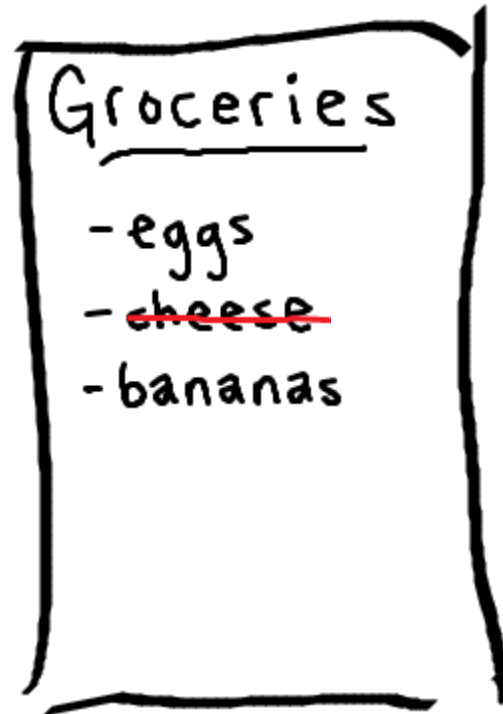 Groceries
- eggs
- cheese
- bananas